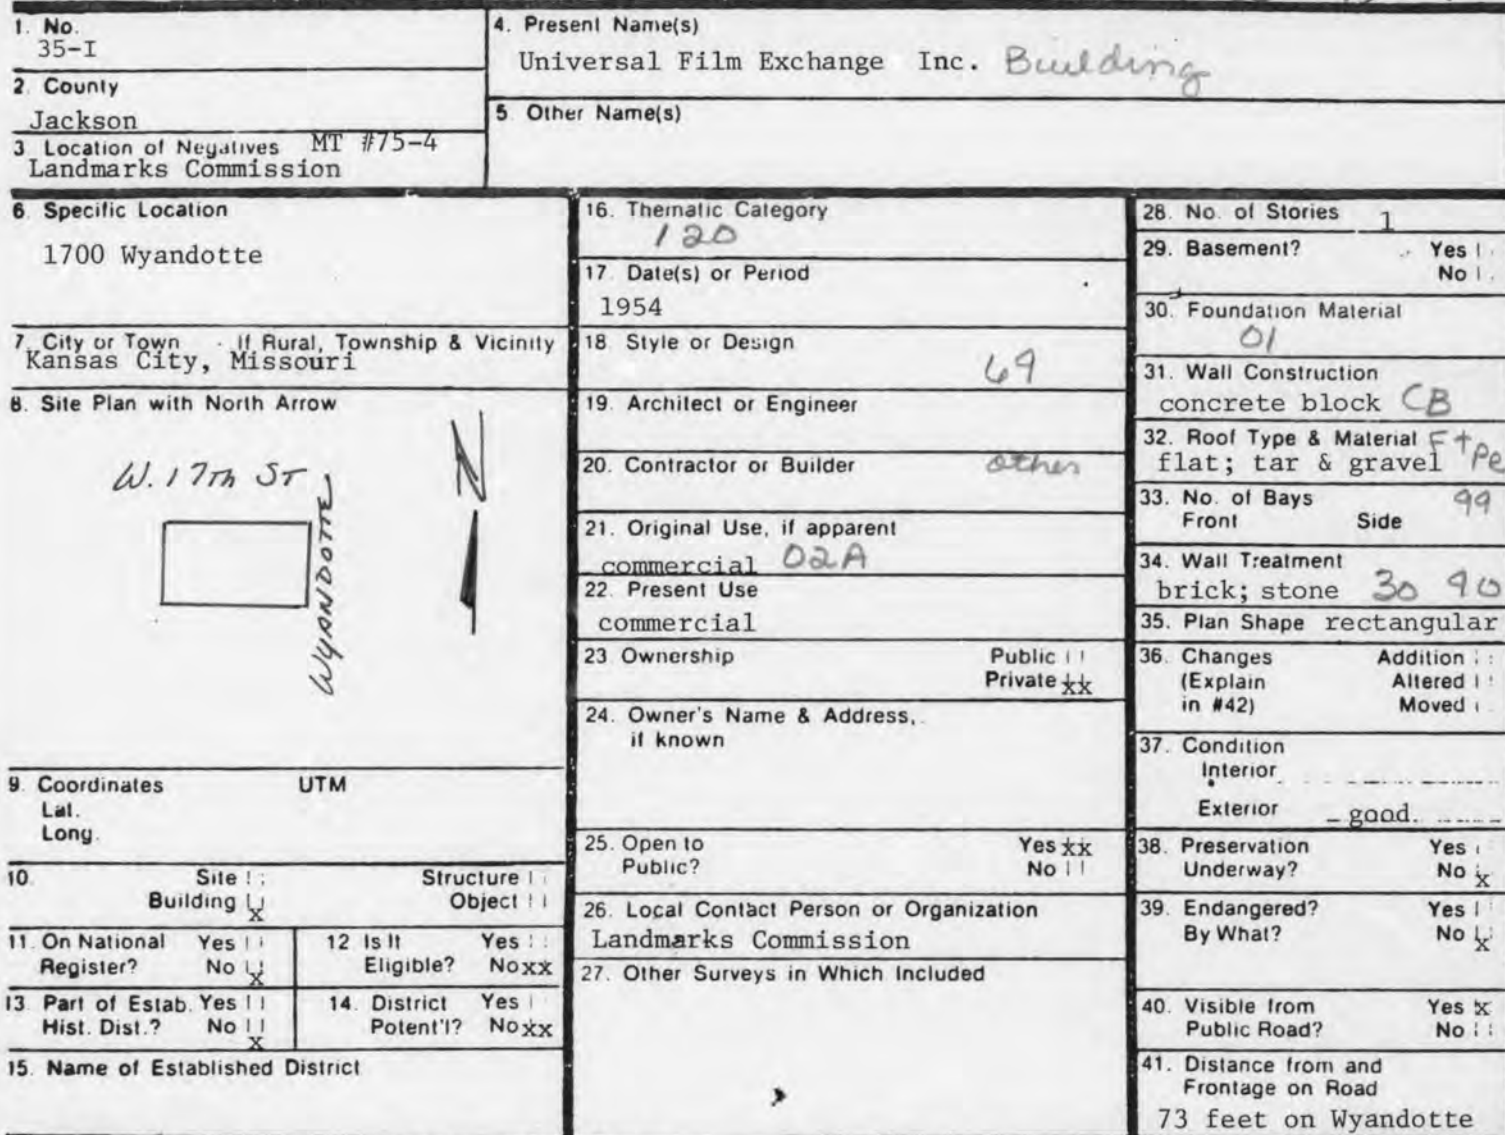 1. No.
35-I
2. County
Jackson
3. Location of Negatives MT #75-4
Landmarks Commission
4. Present Name(s)
Universal Film Exchange Inc. Building
5. Other Name(s)
6. Specific Location
1700 Wyandotte
7. City or Town If Rural, Township & Vicinity
Kansas City, Missouri
8. Site Plan with North Arrow
N
W. 17th ST
WYANDOTTE
9. Coordinates UTM
Lat.
Long.
10. Site Structure
Building x Object
11. On National Yes
Register? No x
12. Is It Yes
Eligible? No xx
13. Part of Estab. Yes
Hist. Dist.? No x
14. District Yes
Potent'l? No xx
15. Name of Established District
16. Thematic Category
120
17. Date(s) or Period
1954
18. Style or Design
69
19. Architect or Engineer
20. Contractor or Builder other
21. Original Use, if apparent
commercial 02A
22. Present Use
commercial
23. Ownership Public
Private xx
24. Owner's Name & Address,
if known
25. Open to Yes xx
Public? No
26. Local Contact Person or Organization
Landmarks Commission
27. Other Surveys in Which Included
28. No. of Stories 1
29. Basement? Yes
No
30. Foundation Material
01
31. Wall Construction
concrete block CB
32. Roof Type & Material F +
flat; tar & gravel pe
33. No. of Bays 99
Front Side
34. Wall Treatment
brick; stone 30 90
35. Plan Shape rectangular
36. Changes Addition
(Explain Altered
in #42) Moved
37. Condition
Interior
Exterior good.
38. Preservation Yes
Underway? No x
39. Endangered? Yes
By What? No x
40. Visible from Yes x
Public Road? No
41. Distance from and
Frontage on Road
73 feet on Wyandotte